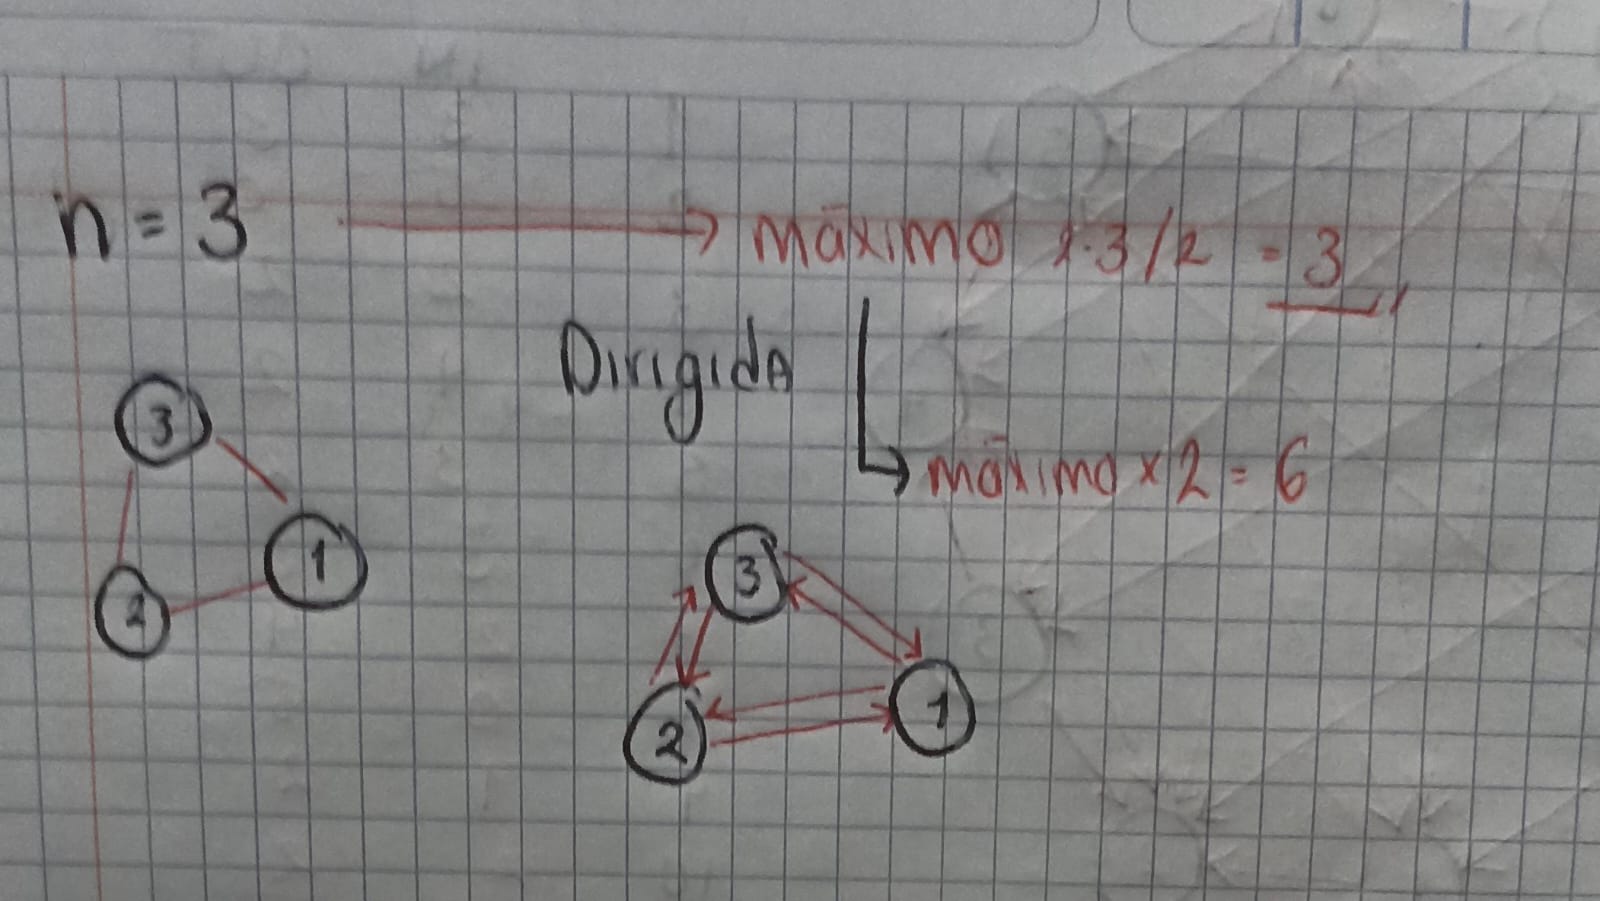 n = 3 → máximo 2·3/2 = 3
Dirigida
máximo x 2 = 6
3
1
2
3
1
2